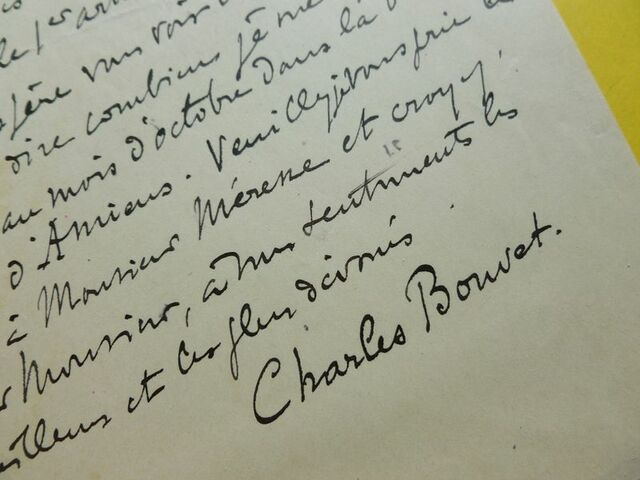 le 1er
père vous voir
dire combien je me
au mois d'octobre dans la
d'Amiens. Veuillez je vous prie
à Monsieur Méresse et croyez,
Monsieur, à mes sentiments les
meilleurs et les plus dévoués.
Charles Bouvet.